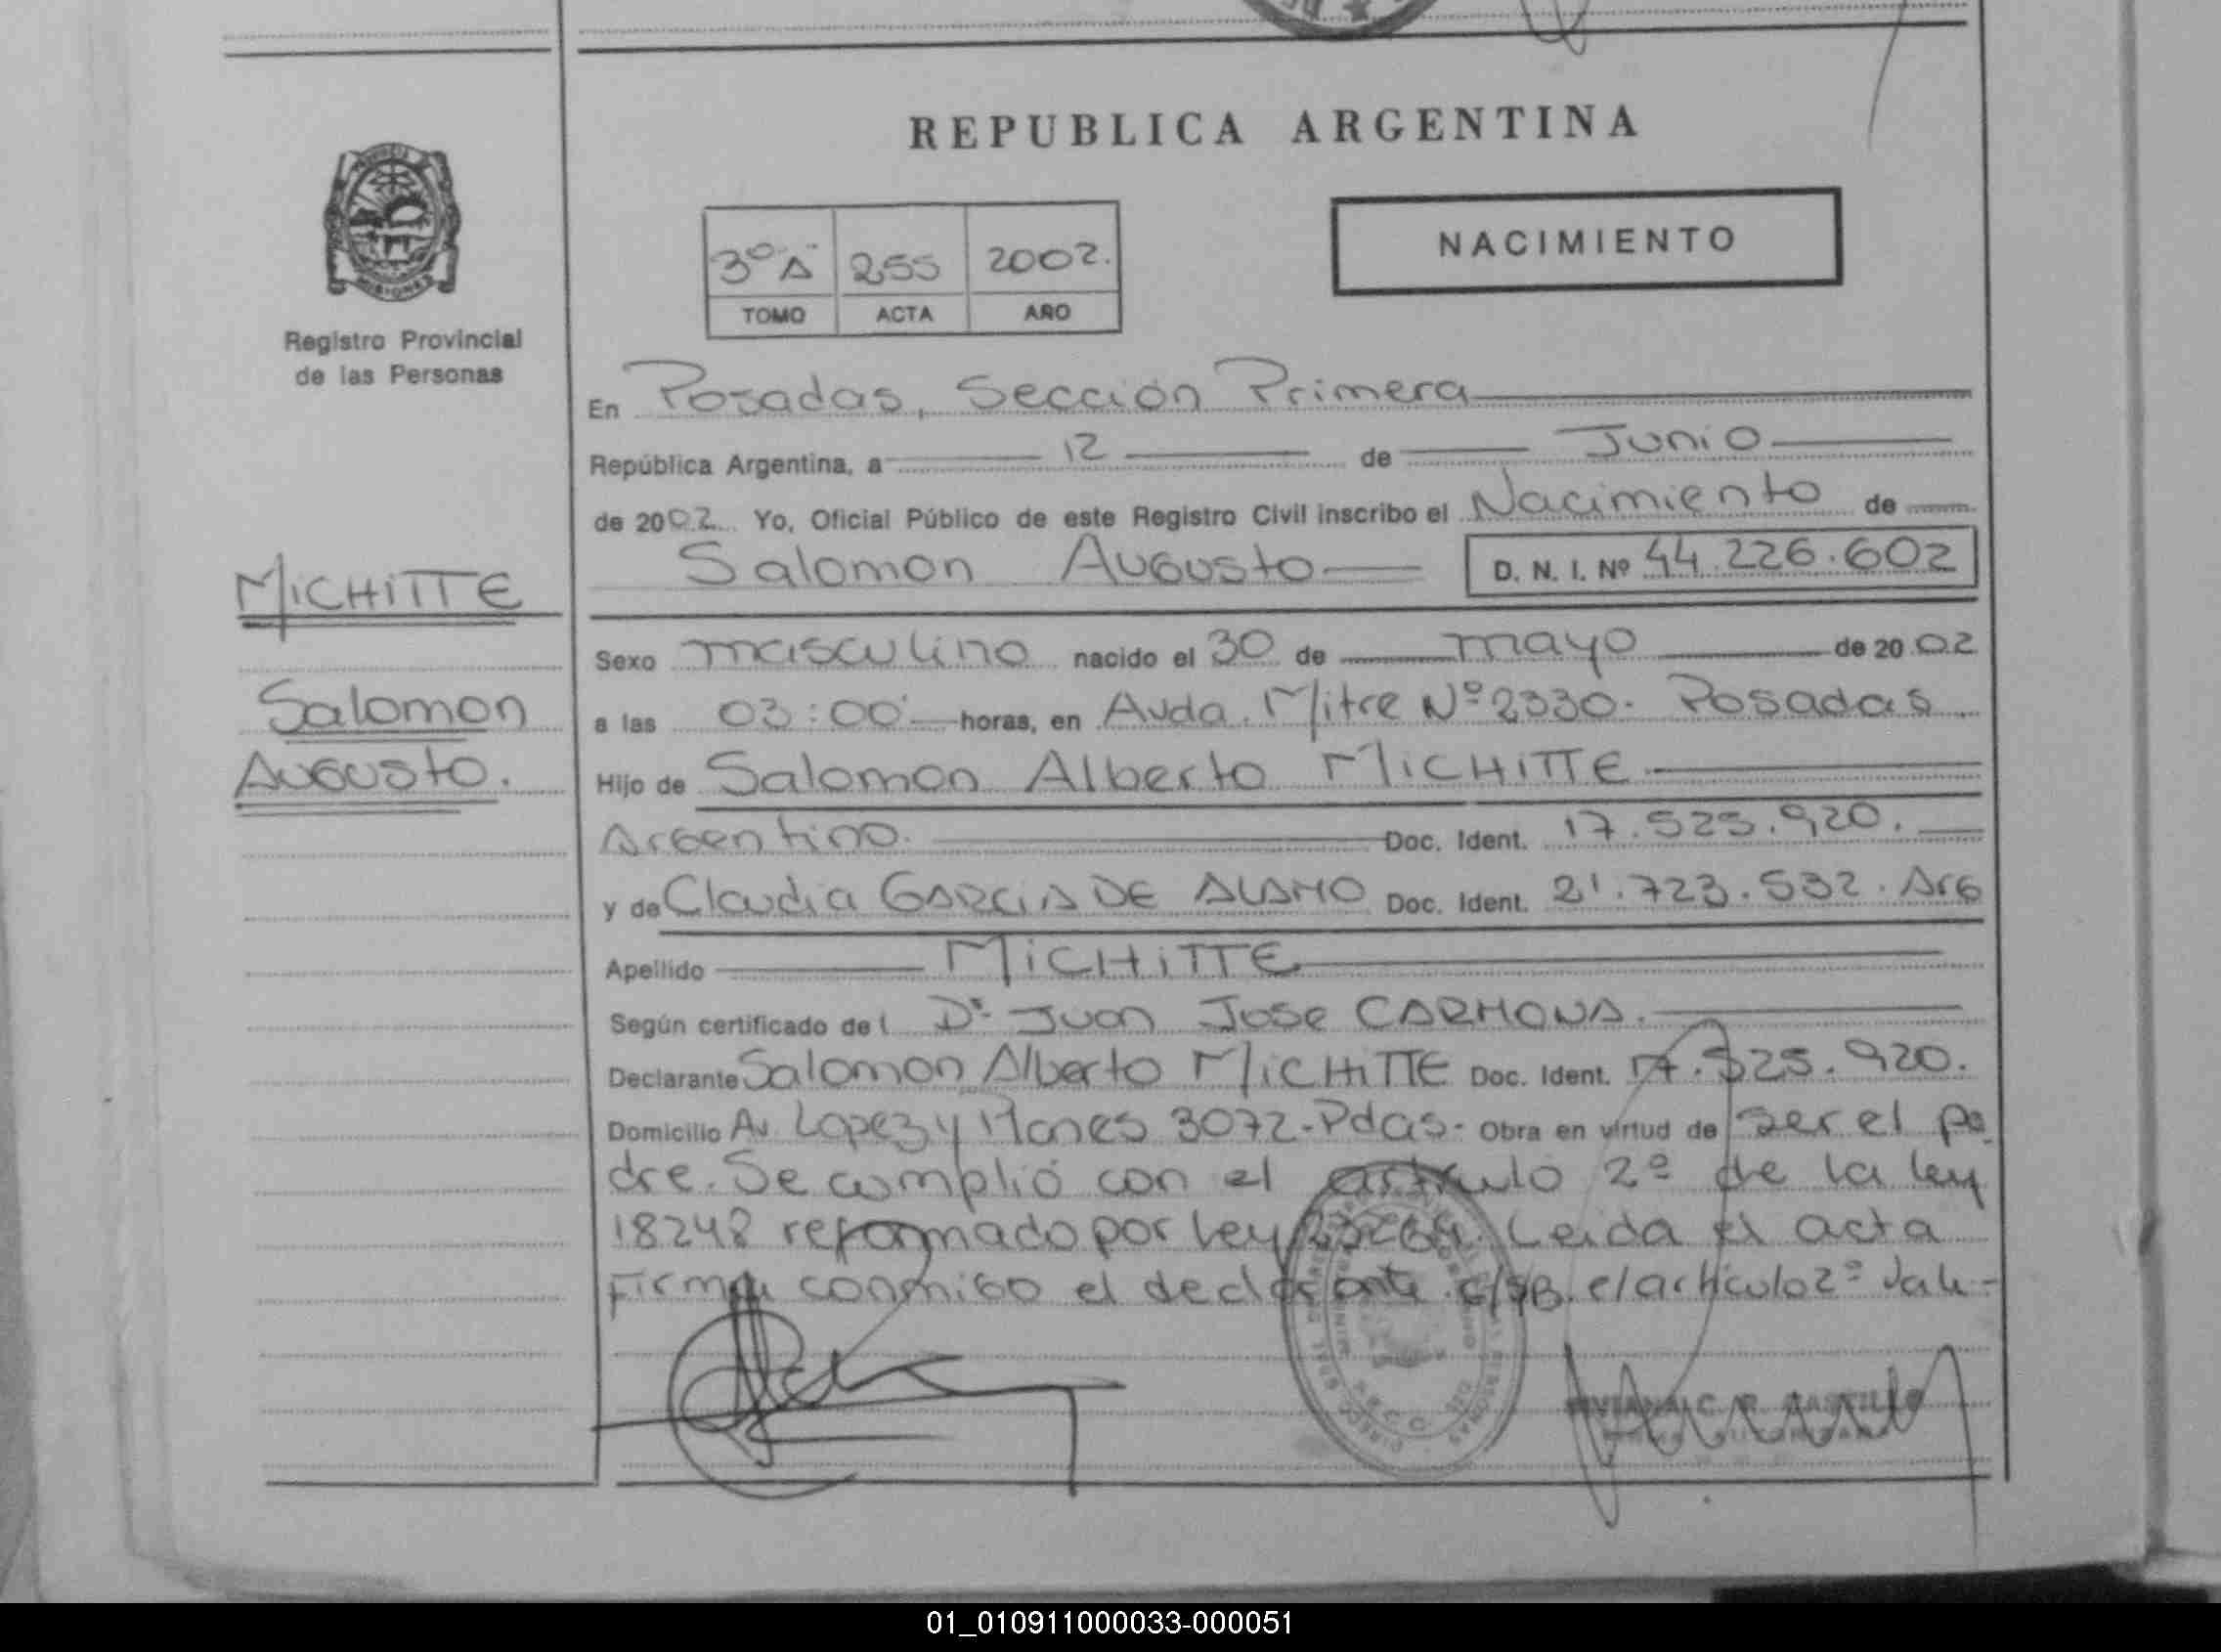 REPUBLICA ARGENTINA
3º A 255 2002.
TOMO ACTA AÑO
NACIMIENTO
Registro Provincial
de las Personas
En Posadas, Sección Primera
República Argentina, a 12 de Junio
de 2002. Yo, Oficial Público de este Registro Civil inscribo el Nacimiento de
Salomon Augusto D. N. I. Nº 44.226.602
MICHITTE
Salomon
Augusto.
Sexo masculino nacido el 30 de mayo de 2002
a las 03:00 horas, en Avda. Mitre Nº 2330. Posadas
Hijo de Salomon Alberto MICHITTE
Argentino. Doc. Ident. 17.525.920.
y de Claudia GARCIA DE ALAMO Doc. Ident. 21.723.532. Arg
Apellido MICHITTE
Según certificado del Dr. Juan Jose CARMONA.
Declarante Salomon Alberto MICHITTE Doc. Ident. 17.525.920.
Domicilio Av. Lopez y Planes 3072-Pdas- Obra en virtud de ser el pa
dre. Se cumplió con el artículo 2º de la ley
18248 reformado por ley 23264. Leida el acta
Firma conmigo el declarante. S/RB. e/artículo 2º Vale-
C. R. CASTILLO
01_010911000033-000051